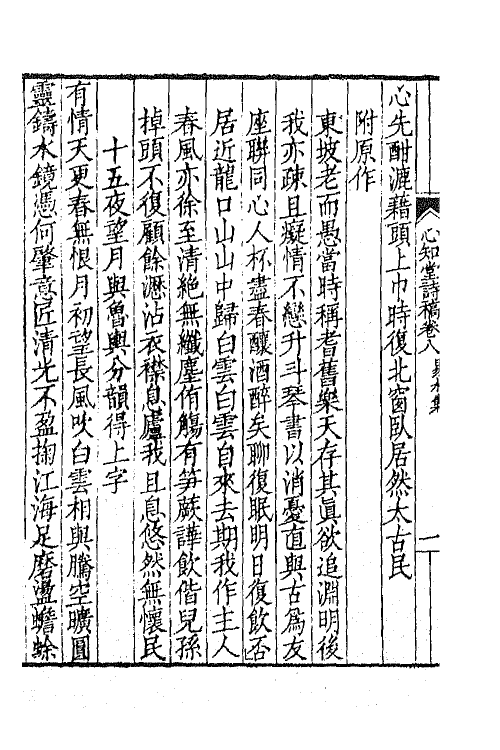 心知堂詩稿卷八
一
心先酣漉藉頭上巾時復北窗臥居然太古民
附原作
東坡老而愚當時稱耆舊樂天存其眞欲追淵明後
我亦疎且癡情不戀升斗琴書以消憂直與古爲友
座聯同心人杯盡春釀酒醉矣聊復眠明日復飲否
居近龍口山山中歸白雲白雲自來去期我作主人
春風亦徐至清絕無纖塵侑觴有笋蕨譁飲偕兒孫
掉頭不復顧餘瀝沾衣襟息廬我且息悠然無懷民
十五夜望月與魯輿分韻得上字
有情天更春無恨月初望長風吹白雲相與騰空曠圓
靈鑄水鏡憑何肇意匠清光不盈掬江海足磨盪蟾蜍